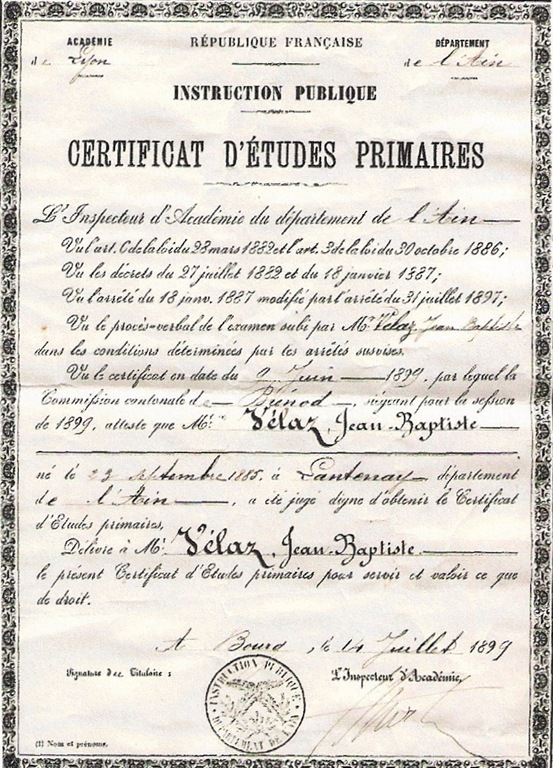 ACADÉMIE
de Lyon
RÉPUBLIQUE FRANÇAISE
DÉPARTEMENT
de l'Ain
INSTRUCTION PUBLIQUE
CERTIFICAT D'ÉTUDES PRIMAIRES
L'Inspecteur d'Académie du département de l'Ain
Vu l'art. 6 de la loi du 28 mars 1882 et l'art. 3 de la loi du 30 octobre 1886;
Vu les décrets du 27 juillet 1882 et du 18 janvier 1887;
Vu l'arrêté du 18 janv. 1887 modifié par l'arrêté du 31 juillet 1897;
Vu le procès-verbal de l'examen subi par Mr Vélaz, Jean Baptiste
dans les conditions déterminées par les arrêtés susvisés.
Vu le certificat en date du 2 Juin 1899, par lequel la
Commission cantonale de Brénod, siégeant pour la session
de 1899, atteste que Mr Vélaz, Jean-Baptiste
né le 23 septembre 1885, à Lantenay département
de l'Ain, a été jugé digne d'obtenir le Certificat
d'Etudes primaires,
Délivre à Mr Vélaz, Jean-Baptiste
le présent Certificat d'Etudes primaires pour servir et valoir ce que
de droit.
A Bourg, le 14 Juillet 1899
Signature du Titulaire :
L'Inspecteur d'Académie,
INSTRUCTION PUBLIQUE
DÉPARTEMENT DE L'AIN
(1) Nom et prénoms.